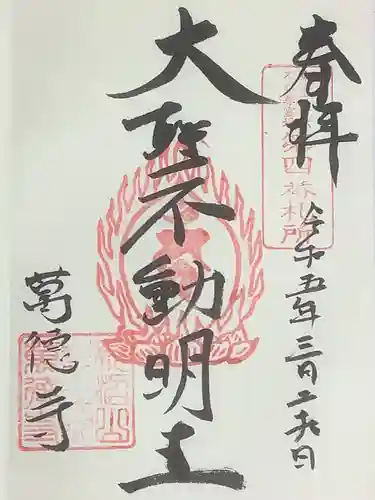 奉拝
四番札所
令和五年三月二十九日
大聖不動明王
萬徳寺